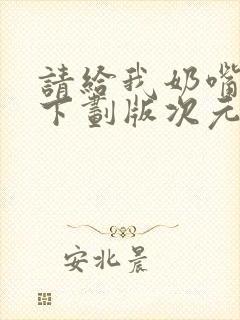 請給我奶嘴
下劃版次元
安北晨